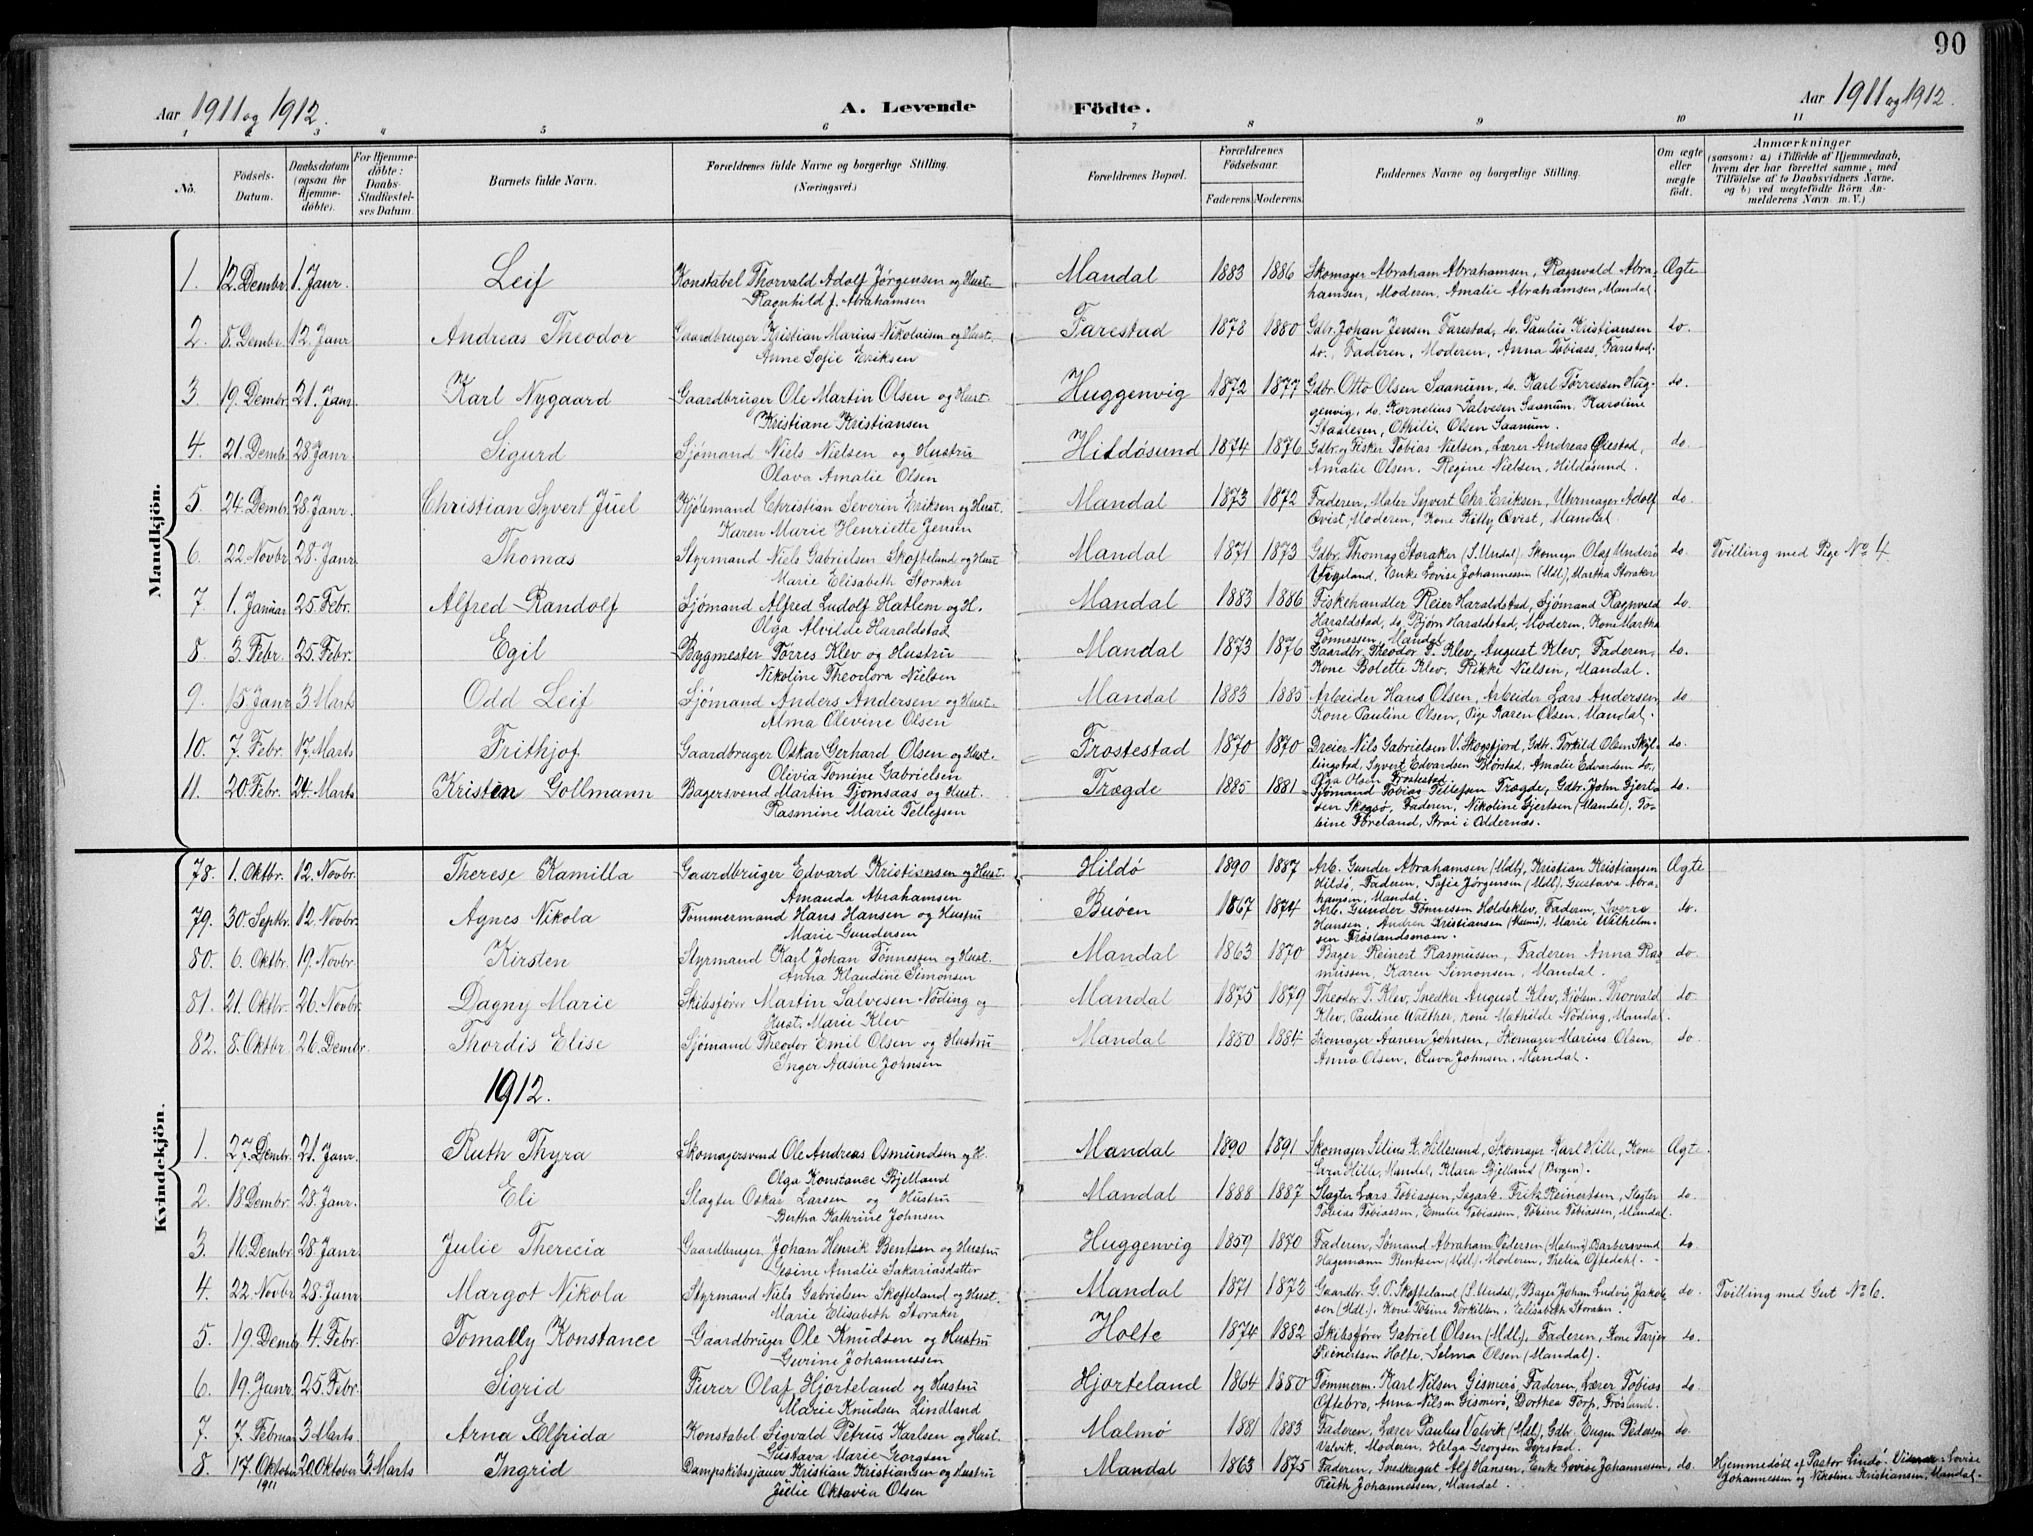 90
Aar 1911 og 1912.
A. Levende Födte.
Aar 1911 og 1912.
1 2 3 4 5 6 7 8 9 10 11
No.
Födsels-Datum.
Daabsdatum (ogsaa for Hjemme-döbte).
For Hjemme-döbte: Daabs-Stadfæstel-ses Datum.
Barnets fulde Navn.
Forældrenes fulde Navne og borgerlige Stilling. (Næringsvei.)
Forældrenes Bopæl.
Forældrenes Födselsaar.
Faderens. Moderens.
Faddernes Navne og borgerlige Stilling.
Om ægte eller uægte födt.
Anmærkninger
(saasom: a) i Tilfælde af Hjemmedaab, hvem der har forrettet samme, med Tilföielse af to Daabsvidners Navne. og b) ved uægtefödte Börn An-melderens Navn m. V.)
Mandkjön.
1. 12. Dembr. 1. Janr. Leif Konstabel Thorvald Adolf Jørgensen og Hust. Mandal 1883 1886 Skomager Abraham Abrahamsen, Ragnvald Abra- Ægte
Ragnhild J. Abrahamsen hamsen, Moderen, Amalie Abrahamsen, Mandal.
2. 8. Dembr. 12. Janr Andreas Theodor Gaardbruger Kristian Marius Nikolaisen og Hust. Farestad 1878 1880 Gdbr. Johan Jensen Farestad, do. Paulus Kristiansen do.
Anne Sofie Eriksen do., Faderen, Moderen, Anna Tobiass, Farestad.
3 19. Dembr. 21. Janr. Karl Nygaard Gaardbruger Ole Martin Olsen og Hust. Huggenvig 1872 1877 Gdbr. Otto Olsen Saanum, do. Karl Tørressen Hug- do.
Kristiane Kristiansen genvig, do. Kornelius Salvesen Saanum. Karoline
Staalesen, Othilie Olsen Saanum.
4. 21. Dembr. 28. Janr. Sigurd Sjömand Niels Nielsen og Hustru Hildøsund 1874 1876 Gdbr. og Fisker Tobias Nielsen, Lærer Andreas Øiestad do.
Olava Amalie Olsen Amalie Olsen. Regine Nielsen, Hildøsund.
5 24. Dembr. 28. Janr. Christian Syvert Juel Kjölemand Christian Severin Eriksen og Hust. Mandal 1873 1872 Faderen, Maler Syvert Chr. Eriksen, Uhrmager Adolf do.
Karen Marie Henriette Jensen Qvist, Moderen, Kone Kitty Qvist, Mandal.
6 22. Novbr. 28. Janr. Thomas Styrmand Niels Gabrielsen Skofteland og Hust Mandal 1871 1873 Gdbr. Thomas Storaker (S. Undal). Skomgr. Olaf Underö do. Tvilling med Pige No 4
Marie Elisabeth Storaker Vigeland, Enke Lovise Johannessen (Mdl), Martha Storaker.
7 1. Januar 25. Febr. Alfred Randolf Sjömand Alfred Ludolf Hatlem og H. Mandal 1883 1886 Fiskehandler Reier Haraldstad, Sjömand Ragnvald do.
Olga Alvilde Haraldstad Haraldstad, do. Bjørn Haraldstad, Moderen, Kone Martha
Tønnessen, Mandal.
8. 3. Febr. 25. Febr. Egil Bygmester Tørres Klev og Hustru Mandal 1873 1876 Gaardbr. Theodor T. Klev, August Klev, Faderen, do.
Nikoline Theodora Nielsen Kone Bolette Klev, Rikke Nielsen, Mandal.
9. 15. Janr. 3. Marts Odd Leif Sjömand Anders Andersen og Hust. Mandal 1883 1885 Arbeider Hans Olsen, Arbeider Lars Andersen, do
Alma Olevine Olsen Kone Pauline Olsen, Pige Karen Olsen, Mandal.
10. 7. Febr. 17. Marts Frithjof Gaardbruger Oskar Gerhard Olsen og Hust. Frostestad 1870 1870 Dreier Nils Gabrielsen V. Skogsfjord, Gdbr. Torkild Olsen Skjl- do.
Olivia Tomine Gabrielsen lingstad, Syvert Edvardsen Børstad, Amalie Edvardsen do,
Olga Olsen Frostestad.
11. 20. Febr. 24. Marts Kristen Gollmann Bagersvend Martin Fjomsaas og Hust. Trægde 1885 1881 Sjömand Tobias Tellefsen Trægde, Gdbr. John Gjert- do.
Rasmine Marie Tellefsen sen Skogsø, Faderen, Nikoline Gjertsen (Mandal). To-
bine Føreland, Strai i Oddernæs.
Kvindekjön.
78. 1. Oktbr. 12. Novbr. Therese Kamilla Gaardbruger Edvard Kristiansen og Hust. Hildø 1890 1887 Arb. Gunder Abrahamsen (Mdl), Kristian Kristiansen Ægte
Amanda Abrahamsen Hildø, Faderen, Sofie Jørgensen (Mdl). Gustava Abra-
hamsen, Mandal.
79. 30 Septbr. 12. Novbr. Agnes Nikola Tømmermand Hans Hansen og Hustru Buøen 1867 1874 Arb. Gunder Tønnessen Holdeklev, Faderen, Sverre do.
Marie Gundersen Hansen, Andrea Kristiansen (Malmö), Marie Wilhelm-
sen Frøslandsmoen.
80. 6. Oktbr. 19. Novbr. Kirsten Styrmand Karl Johan Tønnessen og Hust. Mandal 1863 1870 Bager Reinert Rasmussen, Faderen Anna Ras do.
Anna Klaudine Simonsen mussen, Karen Simonsen, Mandal.
81. 21. Oktbr. 26. Novbr. Dagny Marie Skibsfører Martin Salvesen Nöding og Mandal 1875 1879 Theodor T. Klev, Snedker August Klev, Kjölem. Thorvald do
Hust. Marie Klev Klev, Pauline Walther, kone Mathilde Nöding, Mandal.
82. 8. Oktbr 26. Dembr. Thordis Elise Sjömand Theodor Emil Olsen og Hustru Mandal 1880 1884 Skomager Aanen Johnsen, Skomager Marius Olsen, do.
Inger Aasine Johnsen Anna Olsen, Olava Johnsen, Mandal.
1912.
1. 27. Dembr. 21. Janr. Ruth Thyra Skomagersvend Ole Andreas Osmundsen og H. Mandal 1890 1891 Skomager Silius K. Hillesund, Skomager Karl Hille, Kone Ægte.
Olga Konstance Bjelland Sara Hille, Mandal, Klara Bjelland (Bergen).
2. 18 Dembr. 28. Janr. Eli Slagter Oskar Larsen og Hustru Mandal 1888 1887 Slagter Lars Tobiassen, Sagarb. Fritz Reinertsen, Slagter do.
Bertha Kathrine Johnsen Tobias Tobiassen, Emelie Tobiassen, Tobine Tobiassen, Mandal.
3. 11. Dembr. 28. Janr. Julie Therecia Gaardbruger Johan Henrik Bentsen og Hustru Huggenvig 1859 1870 Faderen, Sömand Abraham Pedersen (Malmö) Barbersvend do.
Gesine Amalie Sakariasdatter Hagemann Bentsen (Mdl). Moderen, Thelia Oftedehl.
4. 22. Novbr 28. Janr. Margot Nikola Styrmand Niels Gabrielsen Skofteland og Hust. Mandal 1871 1873 Gaardbr. G. P. Skofteland (S. Undal), Bager Johan Ludvig Jakob- do. Tvilling med Gut No 6.
Marie Elisabeth Storaker sen (Mdl.), Kone Tobine Torkildsen, Elisabeth Storaker.
5. 19. Dembr 4. Febr. Tomally Konstance Gaardbruger Ole Knudsen og Hustru Holte 1874 1882 Skibsfører Gabriel Olsen (Mdl.), Faderen, Kone Tarjer do.
Gurine Johannessen Reinertsen Holte, Selma Olsen (Mandal).
6. 19. Janr. 25. Febr. Sigrid Furer Olaf Hjorteland og Hustru Hjorteland 1864 1880 Tømmerm. Karl Nilsen Gismerø, Faderen, Lærer Tobias do.
Marie Knudsen Lindland Oftebro, Anna Nilsen Gismerø, Dorthea Torp, Frøsland.
7. 7. Februar 3. Marts Arna Elfrida Konstabel Sigvald Petrus Karlsen og Hust. Malmø 1881 1883 Faderen, Lærer Paulus Valvik (Mdl), Gdbr. Eugen Pedersen do.
Gustava Marie Georgsen Valvik, Moderen, Helga Georgsen Dyrstad.
8. 17. Oktober 1911 20 Oktober 3 Marts Ingrid Dampskibssjauer Kristian Kristiansen og Hustru Mandal 1863 1875 Faderen, Snedkergut Alf Hansen, Enke Lovise Johannessen, do. Hjemmedöbt af Pastor Lindø. Vidner: Lovise
Julie Oktavia Olsen Ruth Johannessen, Mandal. Johannessen og Nikoline Kristiansen, Mandal.